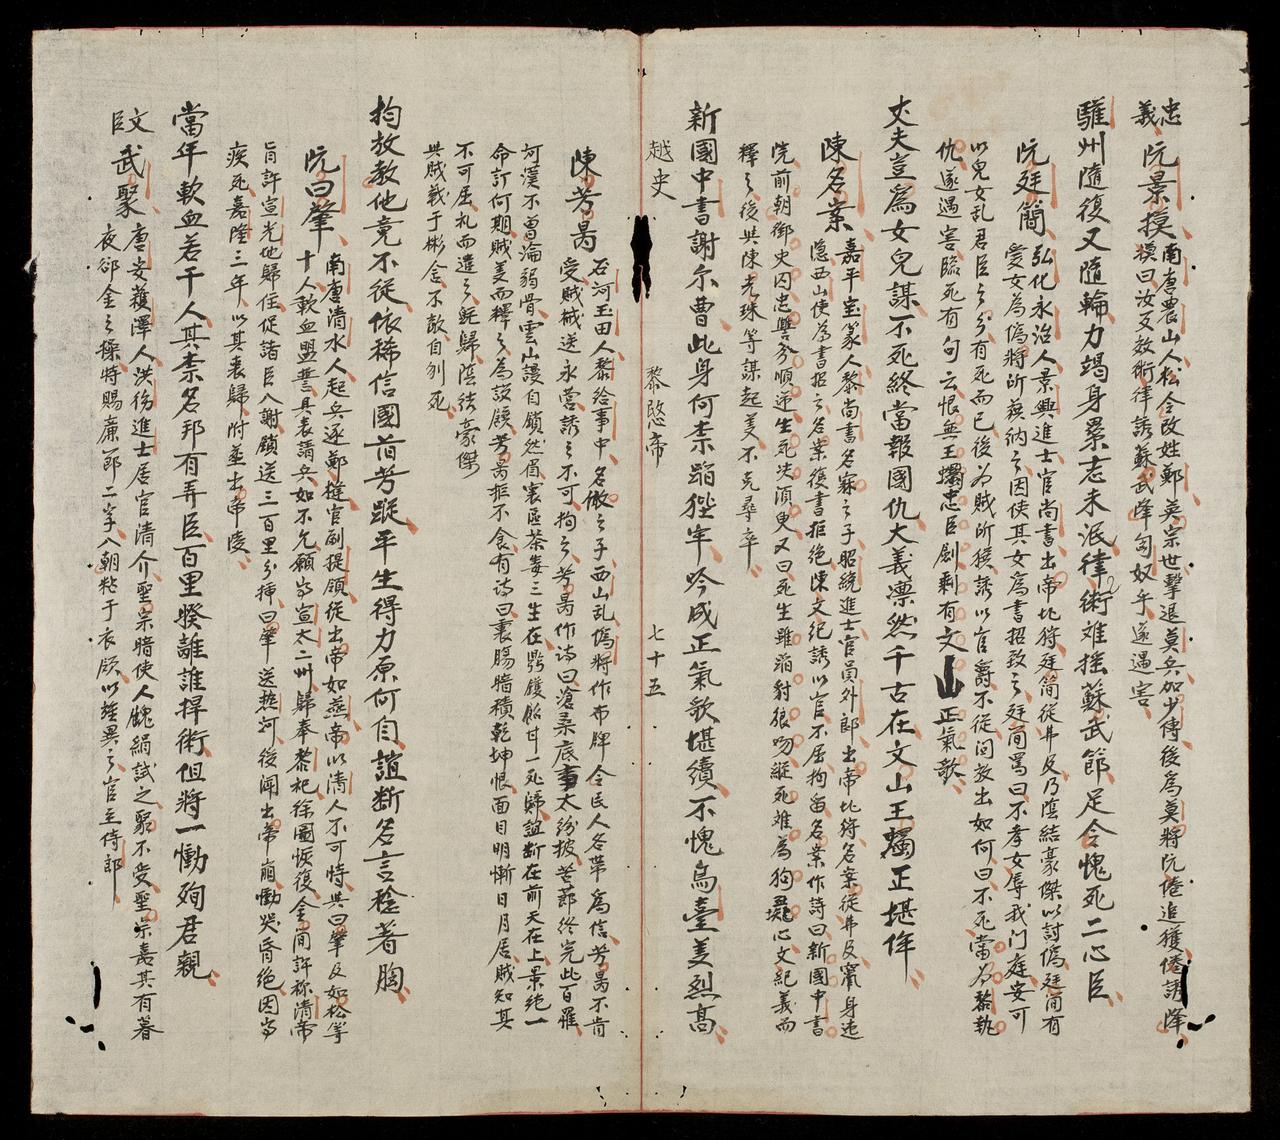 忠義
阮景模 南唐農山人松令改姓鄭英宗世擊退莫兵加少傅後爲莫將阮倦追獲倦誘降
模曰汝又效衛律誘蘇武降匈奴乎遂遇害
驩州隨復又隨輪力竭身累志未泯律術难搖蘇武節足令愧死二心臣
阮廷簡 弘化永治人景興進士官尚書出帝北狩廷简從弗及乃陰結豪傑以討偽廷简有
愛女為偽將所获納之因使其女為書招致之廷简罵曰不孝女辱我门庭安可
以兒女乱君臣之分有死而已後为賊所獲誘以官爵不從问放出如何曰不死當为黎執
仇遂遇害臨死有句云恨無王蠋忠臣劍剩有文山正氣歌
丈夫豈爲女兒謀不死終當報國仇大義凛然千古在文山王蠋正堪侔
陳名案 嘉平宝篆人黎尚書名寐之子昭統進士官員外郎出帝北狩名案從弗及竄身逃
隐西山使為書招之名案復書拒绝陳文纪誘以官不屈拘留名案作詩曰新國中書
院前朝御史囚忠讐分順逆生死决須臾又曰死生雖溜豺狼吻縱死难為狗彘心文紀義而
釋之後與陳光珠等謀起义不克尋卒
新國中書謝尔曹此身何柰蹈狴牢吟成正氣歌堪續不愧烏臺美烈高
越史 黎愍帝 七十五
陳芳昺 石河玉田人黎給事中名儆之子西山乱偽將作布牌令民人各带為信芳昺不肯
受賊械送永营誘之不可拘之芳昺作诗曰滄桑底事太纷披苦節終完此百罹
河漢不曾淪弱骨雲山謾自鎖然眉寰區荼毒三生在鼎鑊飴甘一死歸誼断在前天在上景绝一
命訂何期賊义而釋之為設饌芳昺拒不食有诗曰裏腸暗積乾坤恨面目明慚日月居賊知其
不可屈礼而遣之既歸陰结豪傑
與賊战于彬舍不敵自刎死
拘放教他竟不從依稀信國旧芳踪平生得力原何自誼断名言稔著胸
阮曰肇 南唐清水人起兵逐鄭槤官副提領從出帝如燕帝以清人不可恃與曰肇及如松等
十人歃血盟誓具表請兵如不允願為宣太二州歸奉黎祀徐圖恢復金间詐称清帝
旨許宣光地歸任促諸臣入謝鎖送三百里分揷曰肇送热河後闻出帝崩慟哭昏绝因为
疾死嘉隆三年以其丧歸附塟出帝陵
當年歃血若干人其柰名邦有弄臣百里暌誰誰捍術但將一慟殉君親
文臣
武聚 唐安穫澤人洪德進士居官清介聖宗暗使人餽絹試之聚不受聖宗嘉其有暮
夜卻金之操特賜廉節二字入朝粘于衣領以旌異之官至侍郎